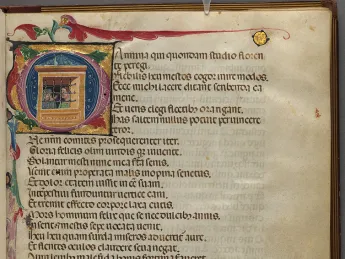 Armina qui quondam studio floren
te peregi.
Flebilis heu mestos cogor inire modos.
Ecce michi lacere dictant scribenda ca
mene.
Et ueris elegi fletibus ora rigant.
Has saltem nullus potuit peruincere
terror.
Ne nostrum comites prosequerentur iter.
Gloria felicis olim uiridis que iuuente.
Solantur mesti nunc mea fata senis.
Uenit enim properata malis inopina senectus
Et dolor etatem iussit in esse suam.
Intempestiui funduntur uertice cani
Et tremit effecto corpore laxa cutis.
Mors hominum felix que se nec dulcibus annis.
Inserit mestis sepe uocata uenit.
Heu heu quam surda miseros aduertitur aure.
Et flentes oculos claudere seua negat.